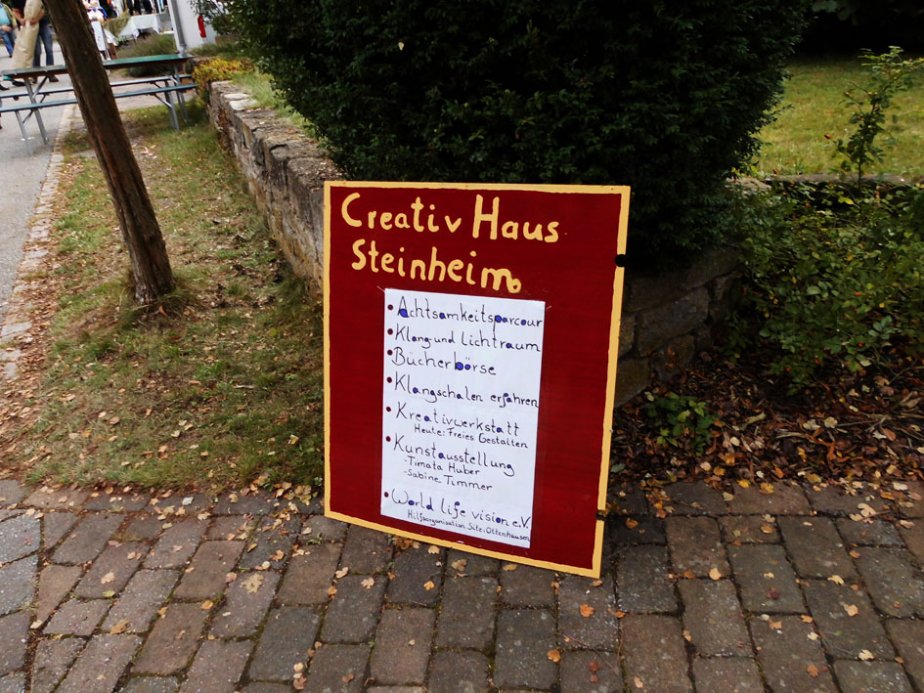 Creativ Haus
Steinheim
• Achtsamkeitsparcour
• Klang-und Lichtraum
• Bücherbörse
• Klangschalen erfahren
• Kreativwerkstatt
Heute: Freies Gestalten
• Kunstausstellung
- Timata Huber
- Sabine Timmer
• World life vision e.V.
Hilfsorganisation Sitz: Ottenhausen